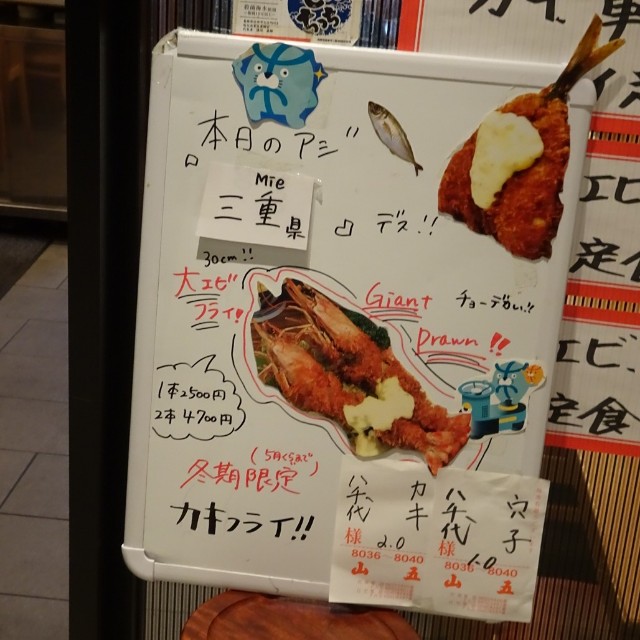 本日のアジ
Mie
三重県
デス!!
30cm!!
大エビ
フライ!
Giant
Prawn!!
チョーデカい!!
1本2500円
2本4700円
(5月くらいまで)
冬期限定
カキフライ!!
カキ
八千代
様
2.0
8036-8040
山五
穴子
八千代
様
1.0
8036-8040
山五
エビ
定食
エビ、
定食